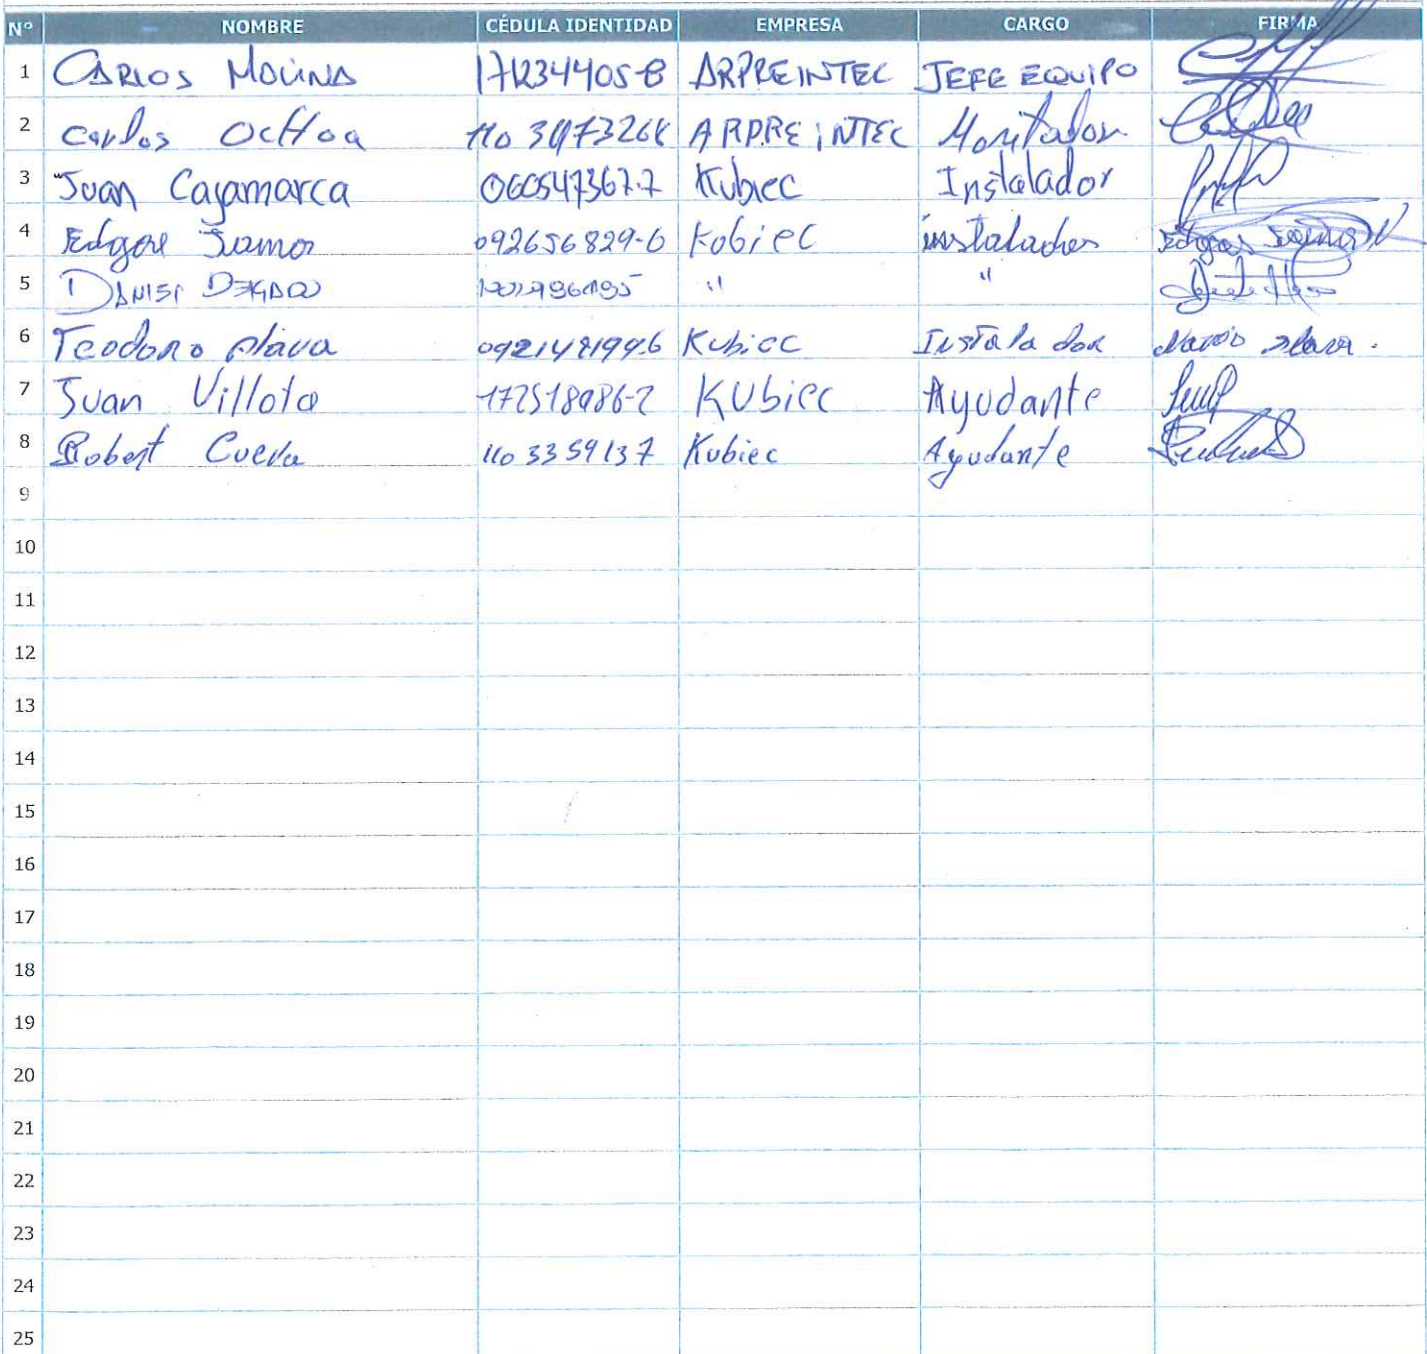 Nº NOMBRE CÉDULA IDENTIDAD EMPRESA CARGO FIRMA
1 CARLOS MOLINA 171234405-8 ARPREINTEC JEFE EQUIPO
2 Carlos OcHoa ARPREiNTEC Montador
3 Juan Cajamarca 060547367-7 Kubiec Instalador
4 092656829-6 Kobiec instalador
5 DANIEL DELGADO " "
6 Teodoro plava 092148194-6 Kubiec Instalador
7 Juan Villota 172518086-2 KUbiec Ayudante
8 Robert Cueva 1103359137 Kubiec Ayudante
9
10
11
12
13
14
15
16
17
18
19
20
21
22
23
24
25